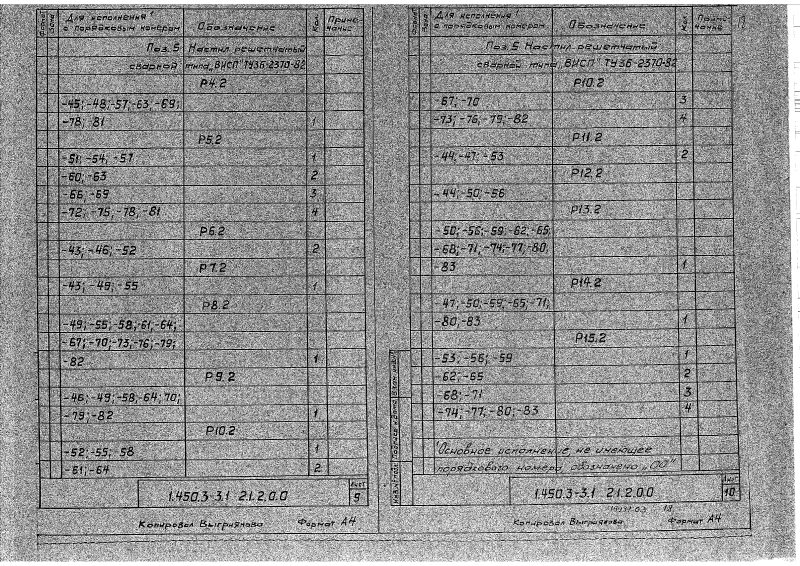 Для исполнения¹ с порядковым номером Обозначение Кол. Примечание
Поз. 5 Настил решетчатый
сварной типа „ВИСП" ТУ36-2370-82
Р4.2
-45; -48; -57; -63; -69;
-78; 81 1
Р5.2
-51; -54; -57 1
-60; -63 2
-66, -69 3
-72; -75, -78, -81 4
Р6.2
-43; -46; -52 2
Р7.2
-43; -49; -55 1
Р8.2
-49; -55; -58; -61; -64;
-67; -70; -73, -76; -79;
-82 1
Р9.2
-46; -49; -58; -64; 70;
-79; -82 1
Р10.2
-52; -55; 58 1
-61; -64 2
1.450.3-3.1 2.1.2.0.0 Лист 9
Копировал Выгриянова Формат А4
Для исполнения¹ с порядковым номером Обозначение Кол. Примечание
Поз. 5 Настил решетчатый
сварной типа „ВИСП" ТУ36-2370-82
Р10.2
-67; -70 3
-73; -76; -79; -82 4
Р11.2
-44; -47; -53 2
Р12.2
-44; -50; -56
Р13.2
-50; -56; -59; -62; -65;
-68; -71, -74; -77; -80,
-83 1
Р14.2
-47; -50; -59; -65; -71;
-80; -83 1
Р15.2
-53; -56; -59 1
-62; -65 2
-68; -71 3
-74; -77; -80; -83 4
¹Основное исполнение, не имеющее
порядкового номера, обозначено „00"
1.450.3-3.1 2.1.2.0.0 Лист 10
Копировал Выгриянова Формат А4